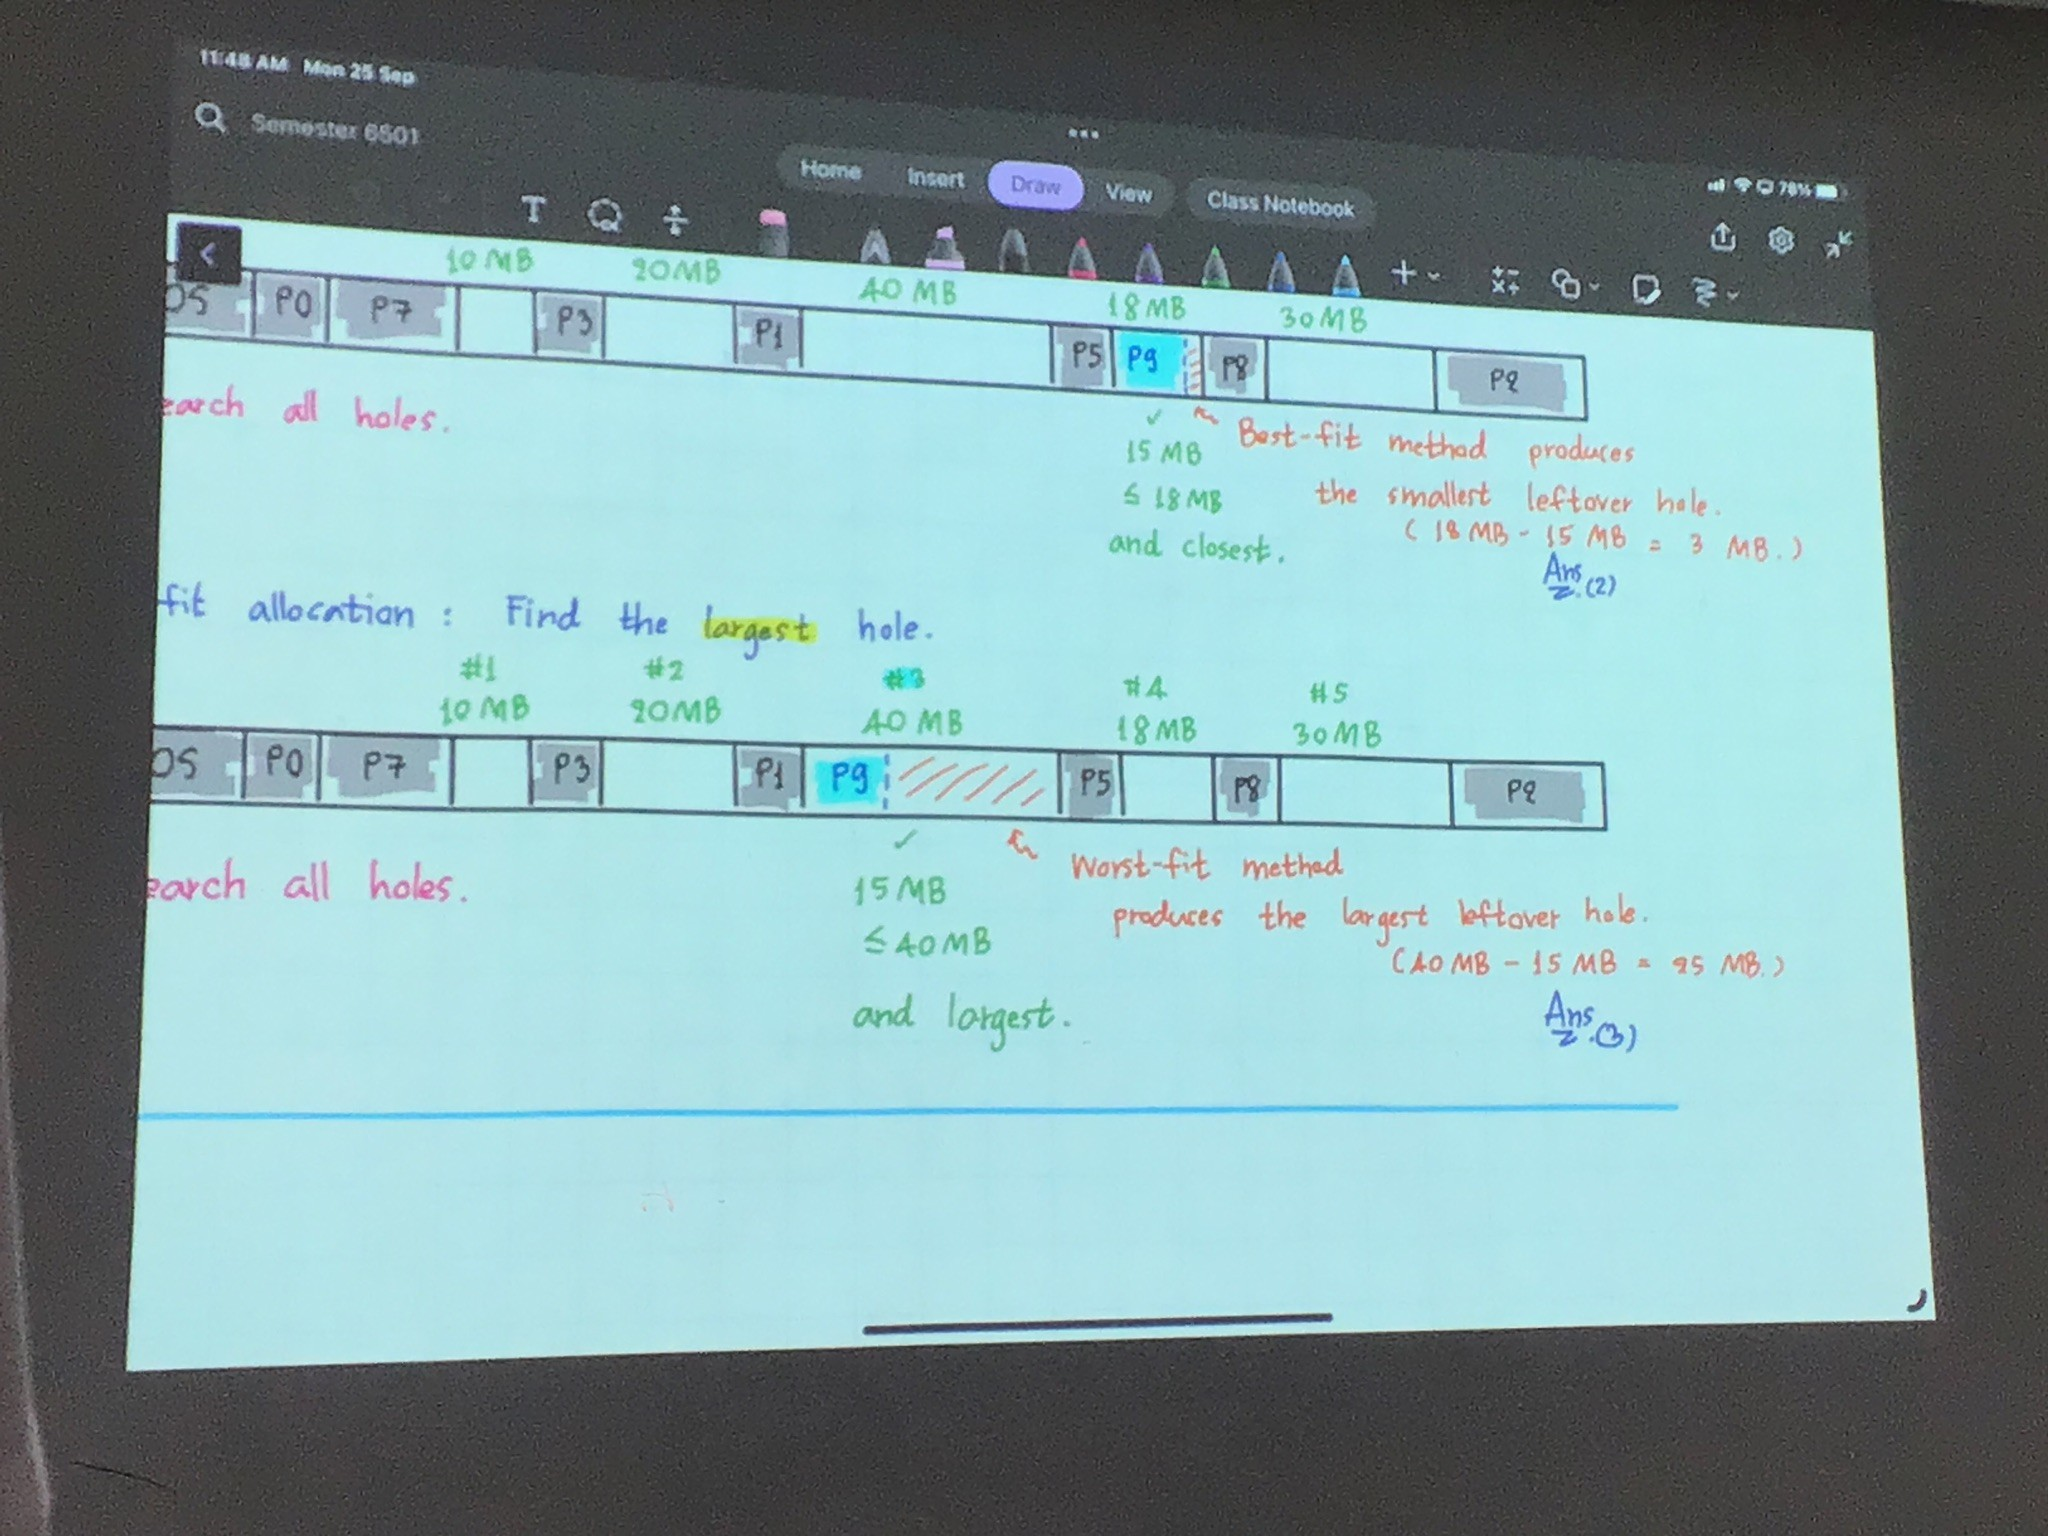 11:48 AM Mon 25 Sep
78%
Semester 6501
Home Insert Draw View Class Notebook
10 MB 20MB 40 MB 18MB 30MB
OS P0 P7 P3 P1 P5 P9 P8 P2
earch all holes.
✓
15 MB
≤ 18MB
and closest.
Best-fit method produces
the smallest leftover hole.
(18 MB - 15 MB = 3 MB.)
Ans.(2)
fit allocation : Find the largest hole.
#1 #2 #3 #4 #5
10 MB 20MB 40 MB 18MB 30MB
OS P0 P7 P3 P1 P9 P5 P8 P2
earch all holes.
✓
15 MB
≤ 40MB
and largest.
Worst-fit method
produces the largest leftover hole.
(40 MB - 15 MB = 25 MB.)
Ans.(3)